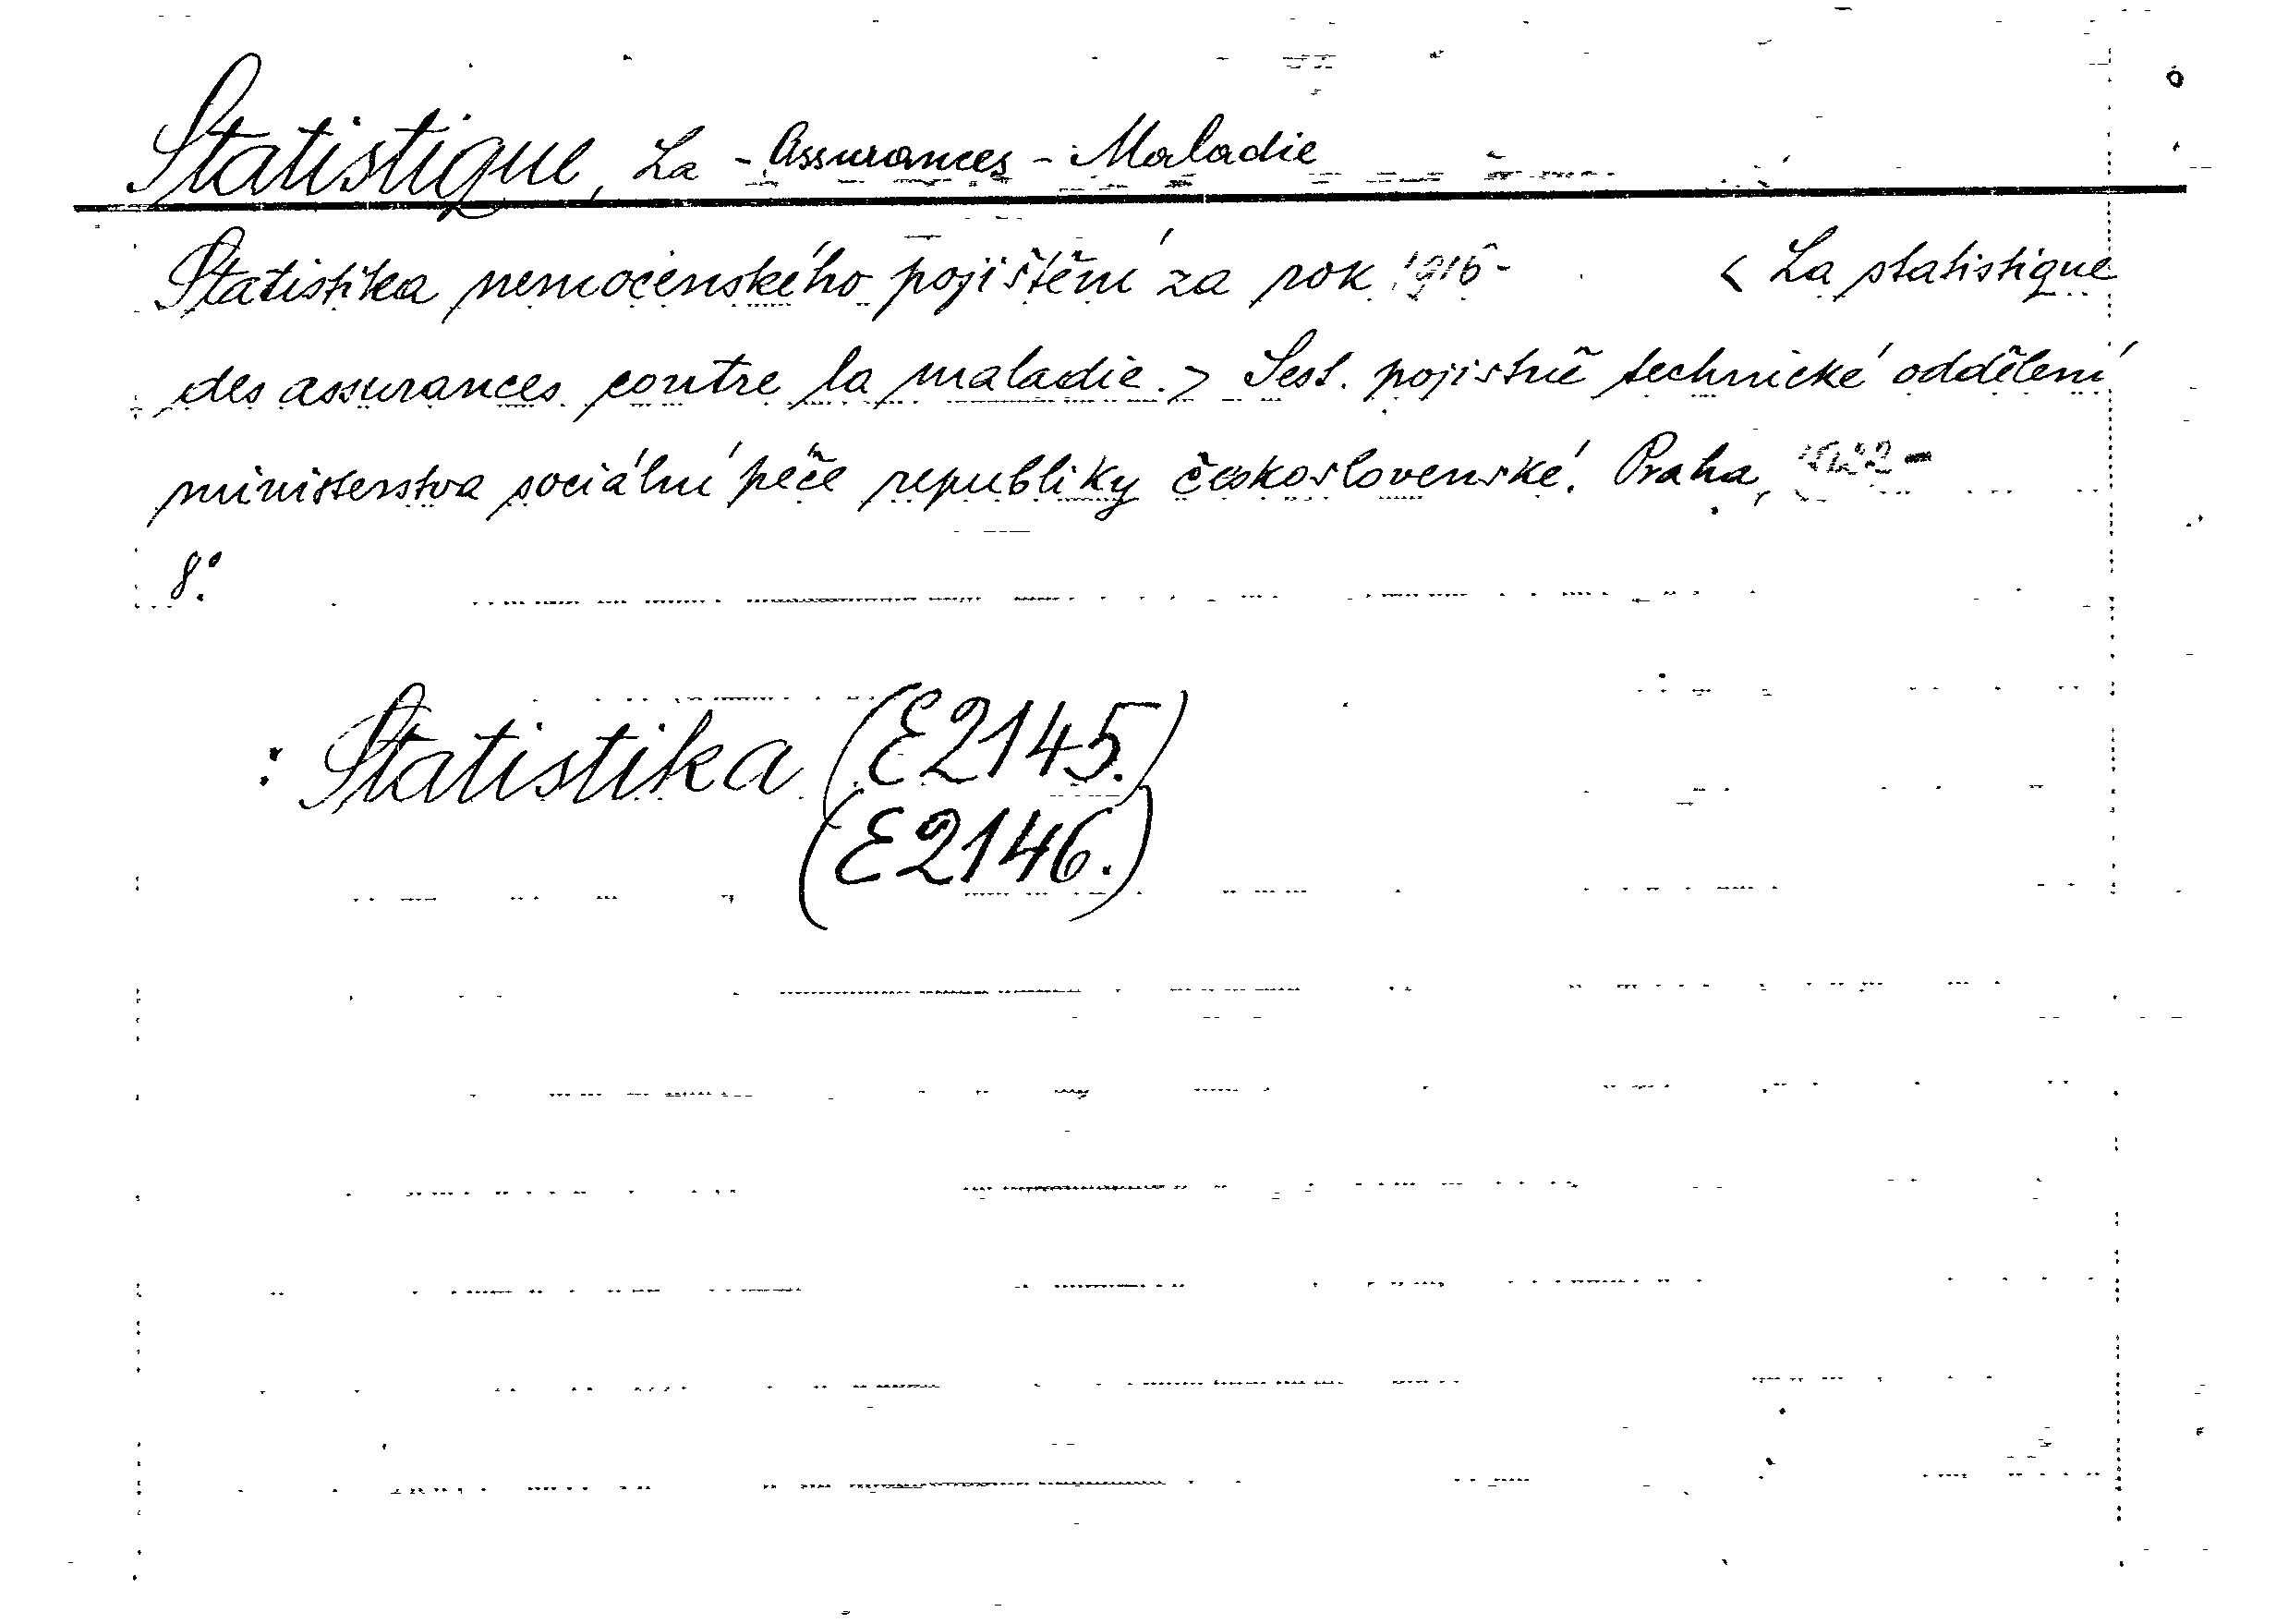 Statistique, La - Assurances - Maladie
Statistika nemocenského pojištění za rok 1916- < La statistique
des assurances contre la maladie. > Sest. pojistně technické oddělení
ministerstva sociální péče republiky československé. Praha, 1922-
8°.
: Statistika (E2145.)
(E2146.)